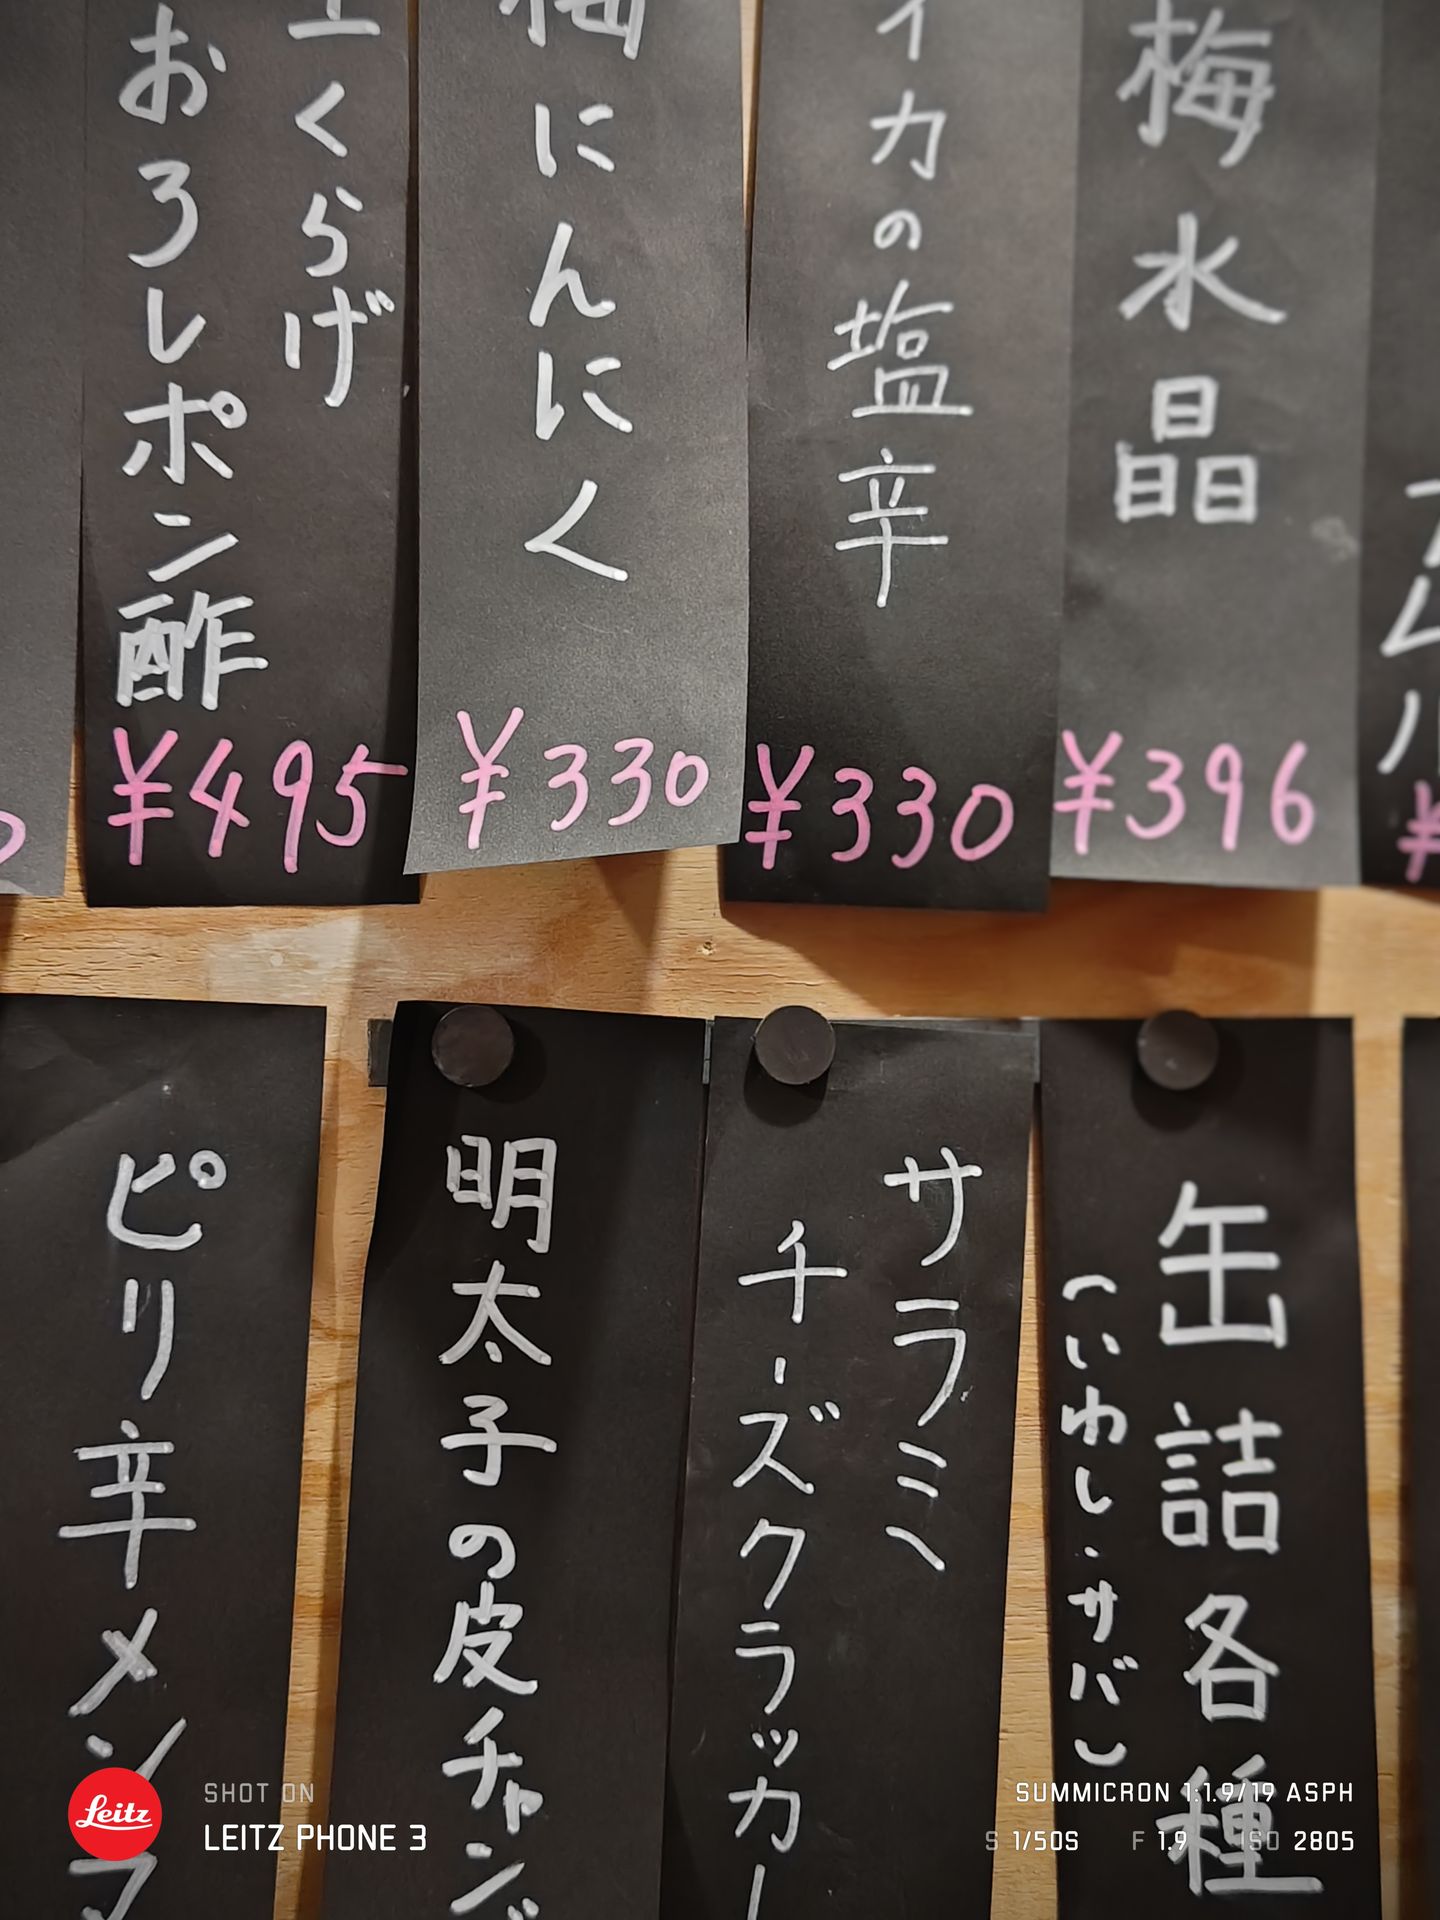 梅水晶
¥396
イカの塩辛
¥330
梅にんにく
¥330
くらげ
おろしポン酢
¥495
缶詰各種
(いわし・サバ)
サラミ
チーズクラッカー
明太子の皮チャンジ
ピリ辛メンマ
Leitz
SHOT ON
LEITZ PHONE 3
SUMMICRON 1:1.9/19 ASPH
S 1/50S F 1.9 ISO 2805